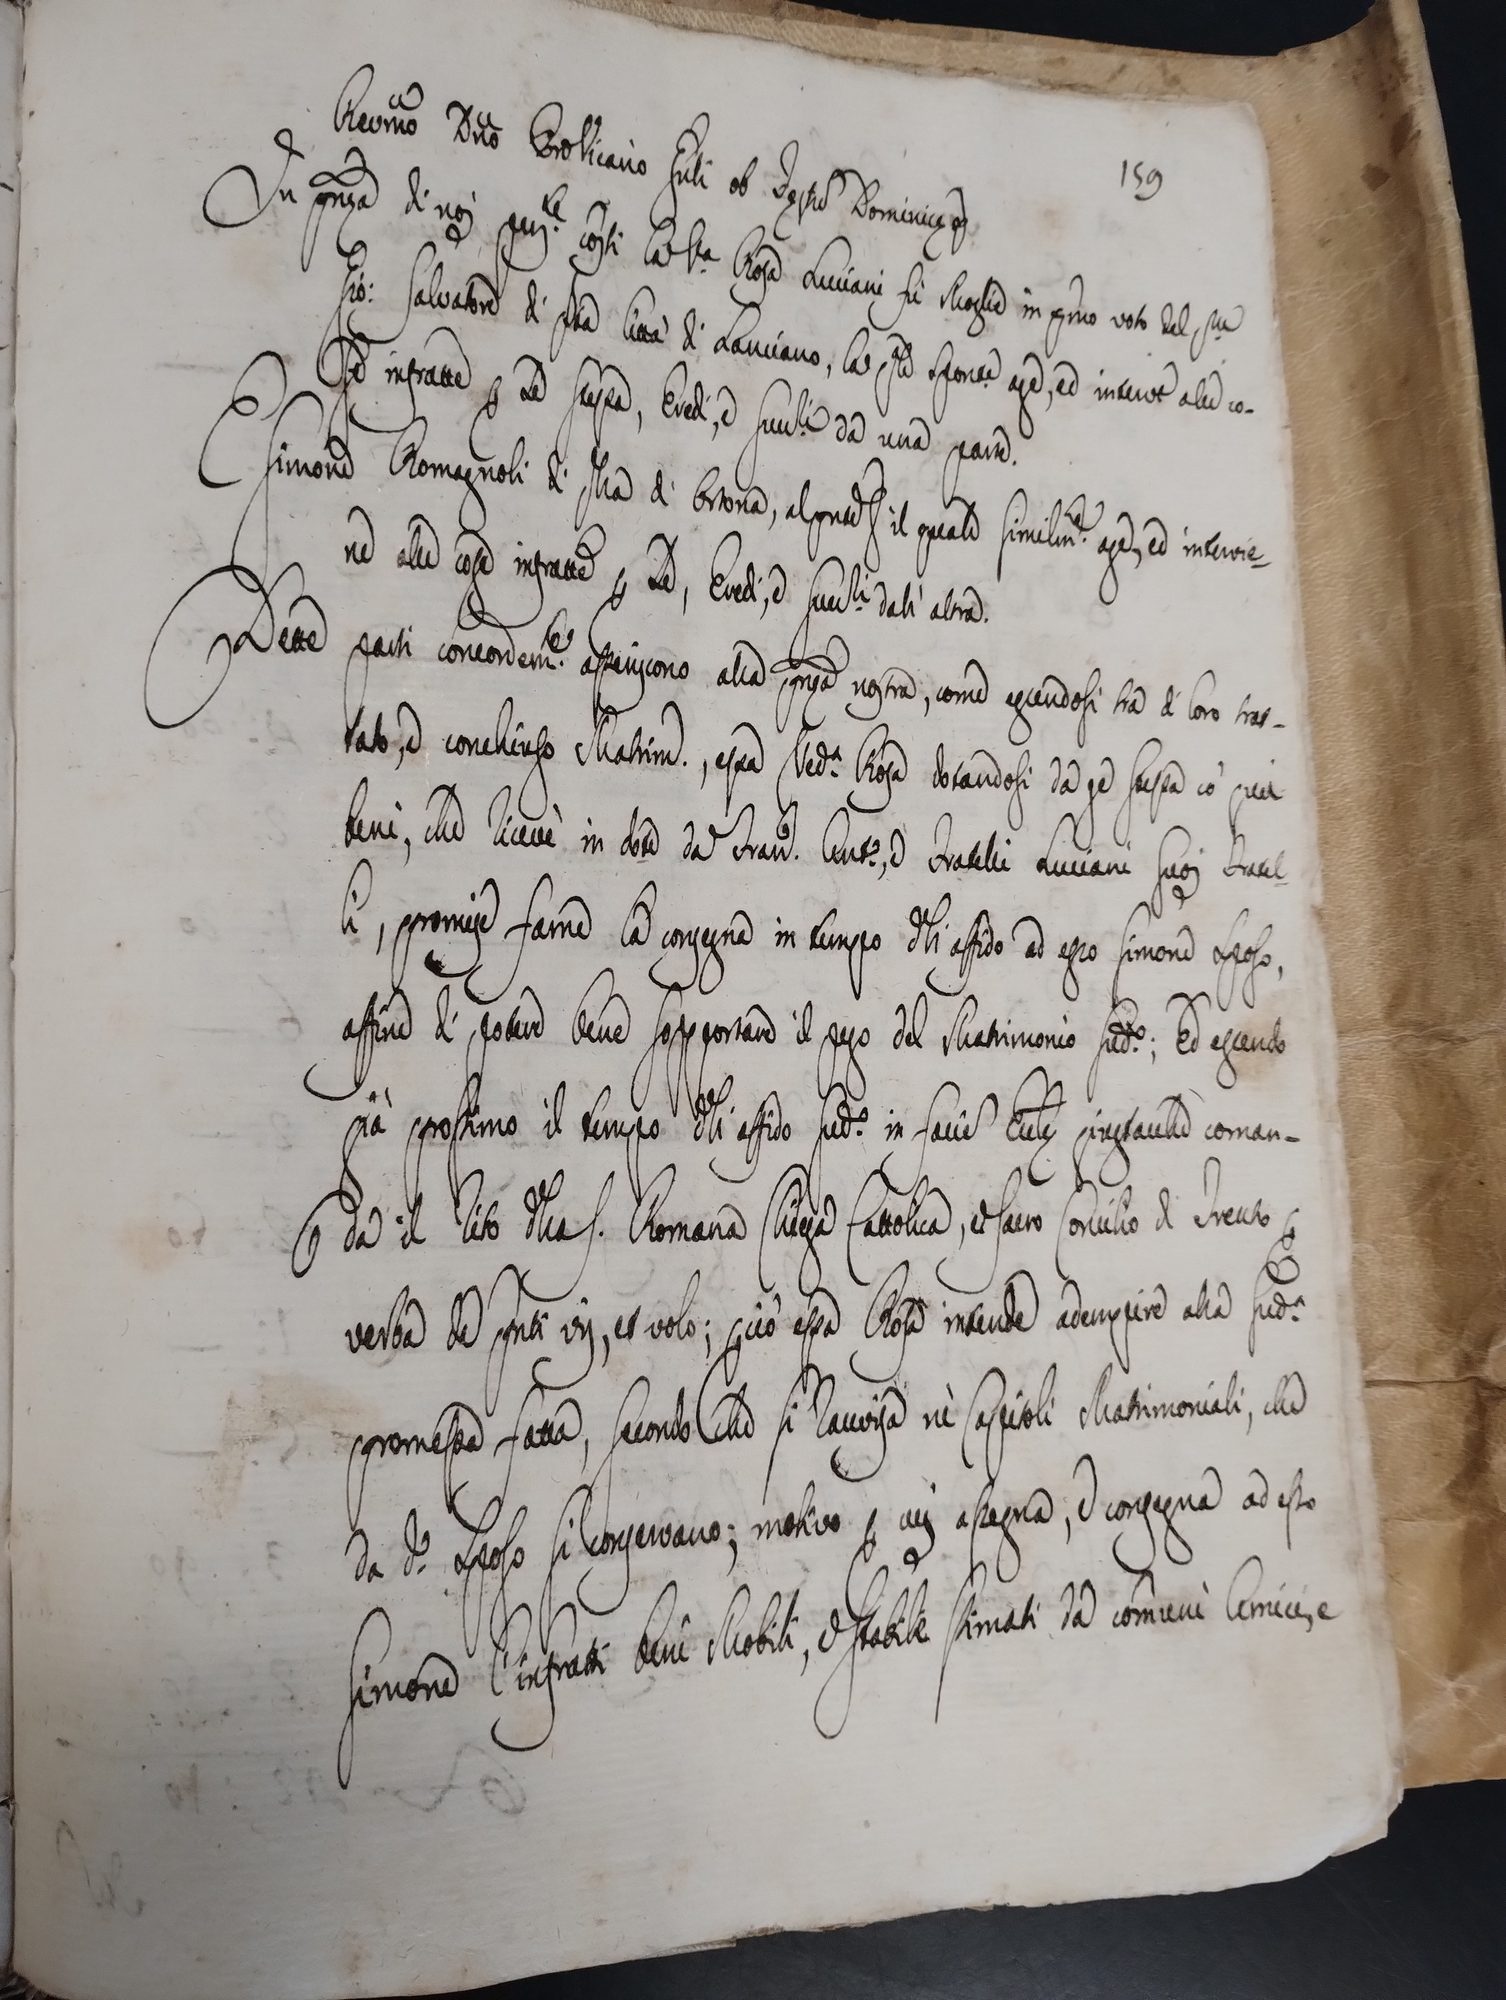 159
Revmo Dno Provicario
In pnza di noi costi la Rosa Luciani fù Moglie in pmo voto del
Gio: Salvatore di qta Città di Lanciano, la qle sponte age, ed interve alle co-
se infratte p se stessa, Eredi, e succri da una parte.
E Simone Romagnoli di qta di Ortona, al pnte il quale similmte age, ed intervie-
ne alle cose infratte p se, Eredi, e succri dall' altra.
Dette parti concordemte asseriscono alla pnza nostra, come essendosi tra di loro trat-
tato, e conchiuso Matrim., essa Veda Rosa dotandosi da se stessa co' quei
beni, che ricevè in dote da Franco. Anto, e Fratelli Luciani suoi Fratel-
li, promise farne la consegna in tempo dell'affido ad esso Simone Sposo,
affine di potere bene sopportare il peso del Matrimonio sudo; Ed essendo
già prossimo il tempo dell'affido sudo in facie Eccle giustache coman-
da il rito della S. Romana Chiesa Cattolica, e Sacro Concilio di Trento p
verba de pnti vis, et volo; pciò essa Rosa intende adempire alla suda
promessa fatta, secondo che si ravvisa nè Capitoli Matrimoniali, che
da do Sposo si conservano; motivo p cui assegna, e consegna ad esso
Simone l'infratti beni Mobili, e stabile stimati da comuni Amici, e